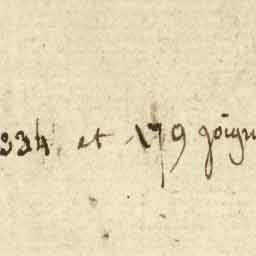 234 et 179 joign